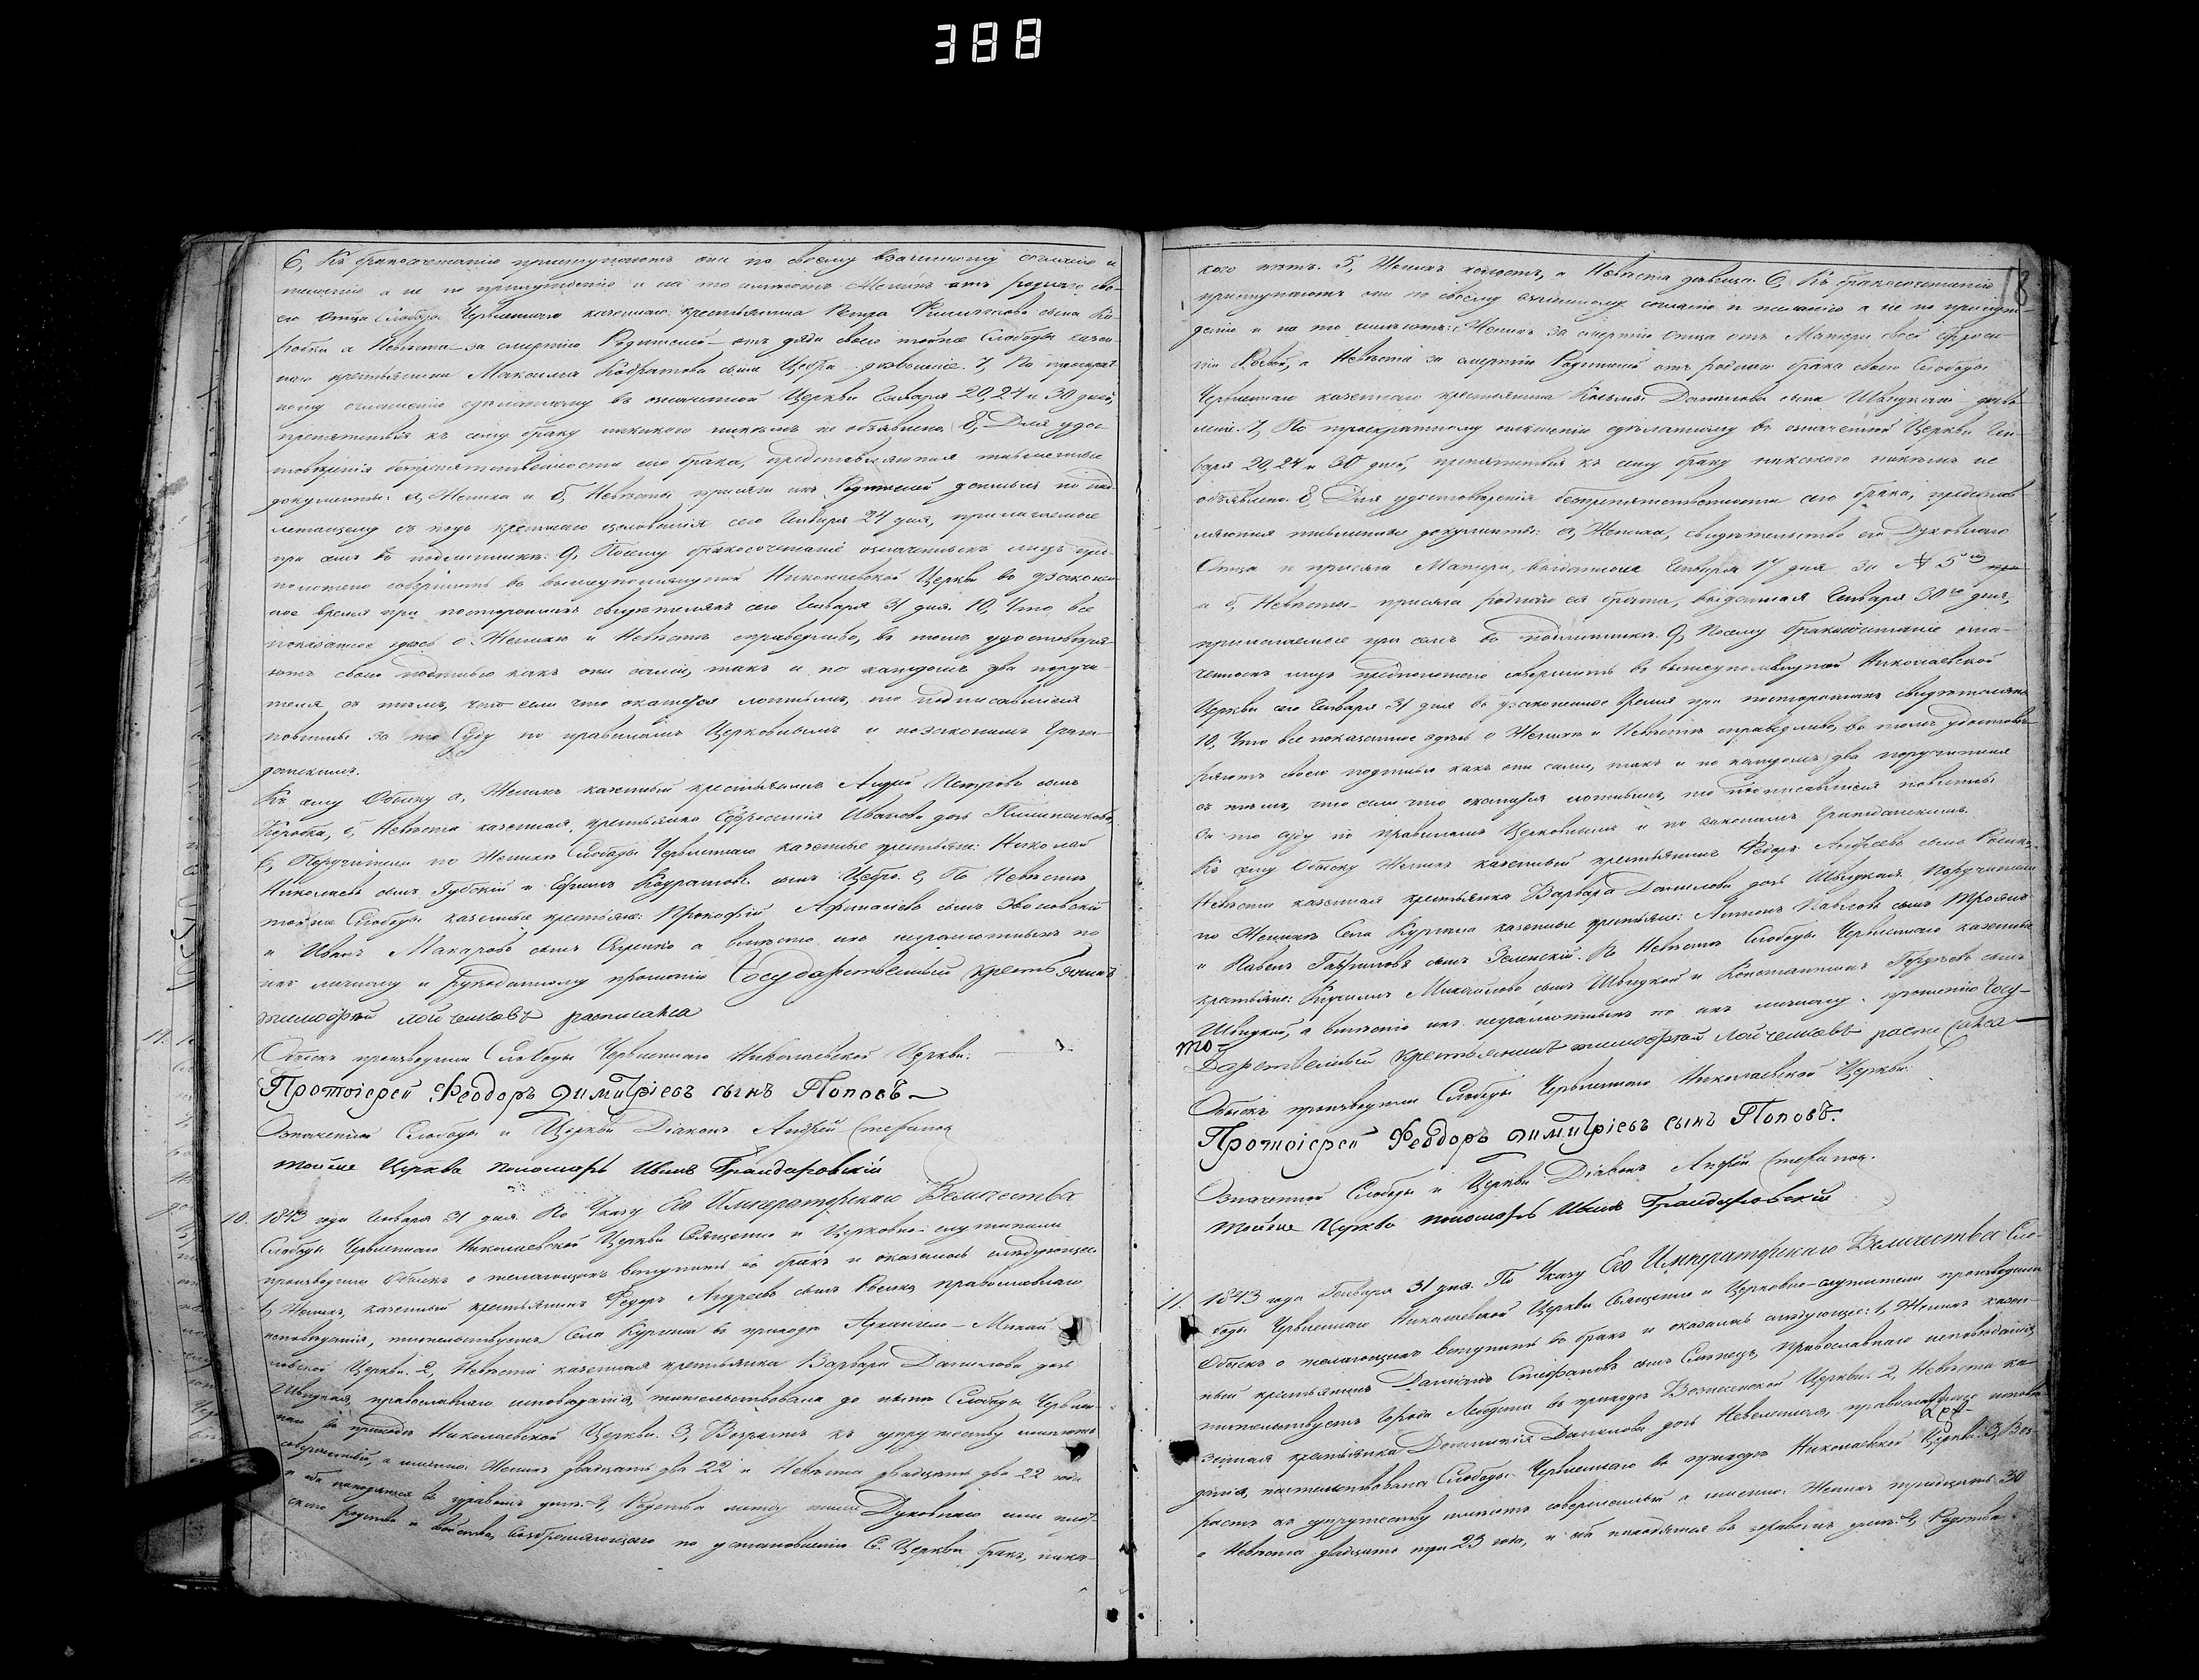 388
6, Къ бракосочетанію приступаютъ они по своему взаимному согласію и
желанію а не по принужденію и на то имѣютъ Женихъ отъ роднаго сво-
его Отца Слободы Червленнаго казеннаго крестьянина Петра сына Ко-
робки а Невѣста за смертію Родителей отъ дяди своего тойже Слободы казен-
наго крестьянина Максима Кодратова сына Цебра дозволеніе. 7, По троекрат-
ному оглашенію сдѣланному въ означенной Церкви Генваря 20, 24 и 30 дней,
препятствія къ сему браку никакого никѣмъ не объявлено. 8, Для удос-
товѣренія безпрепятственности сего брака, представляются письменные
документы: а, Жениха и б, Невѣсты присяги ихъ Родителей данныя по
цѣлованія сего Генваря 24 дня, прилагаемые
при семъ въ подлинникѣ. 9, Посему бракосочетаніе означенныхъ лицъ пред-
положено совершить въ вышеупомянутой Николаевской Церкви въ узаконен-
ное время при постороннихъ свидѣтеляхъ сего Генваря 31 дня. 10, Что все
показанное здѣсь о Женихѣ и Невѣстѣ справедливо, въ томъ удостовѣря-
ютъ своею подписью какъ они сами, такъ и по каждомъ два поручи-
теля съ тѣмъ, что если что окажется ложнымъ, то подписавшіеся
повинны за то Суду по правиламъ Церковнымъ и по законамъ Граж-
данскимъ.
Къ сему Обыску а, Женихъ казенный крестьянинъ Андрей Петровъ сынъ
Коробка, б, Невѣста казенная крестьянка Ефросинія Иванова дочь Пилипенкова,
в, Поручители по Женихѣ Слободы Червленнаго казенные крестьяне: Николай
Николаевъ сынъ Губскій и Ефимъ Кодратовъ сынъ Цебро. г, По Невѣстѣ
тойже Слободы казенные крестьяне: Прокофій Афанасіевъ сынъ
и Иванъ Макаровъ сынъ а вмѣсто ихъ неграмотныхъ по
ихъ личному и рукоданному прошенію Государственный крестьянинъ
тимофей лойченковъ росписался
Обыскъ производили Слободы Червленнаго Николаевской Церкви.
Протоіерей Ѳеодоръ Димитріевъ сынъ Поповъ
Означенной Слободы и Церкви Діаконъ Андрей
тойже Церкви пономарь Иванъ Грандаровскій
10. 1843 года Генваря 31 дня. По Указу Его Императорскаго Величества
Слободы Червленнаго Николаевской Церкви Священно и Церковно-служители
производили Обыскъ о желающихъ вступить въ бракъ и оказалось слѣдующее:
1, Женихъ, казенный крестьянинъ Федоръ Андреевъ сынъ православнаго
исповѣданія, жительствуетъ Села Кургана въ приходѣ Архангело-Михай-
ловской Церкви. 2, Невѣста казенная крестьянка Варвара Данилова дочь
Швидкая, православнаго исповѣданія, жительствовала до нынѣ Слободы Червлен-
наго въ приходѣ Николаевской Церкви. 3, Возрастъ къ супружеству имѣютъ
совершенный, а именно: Женихъ двадцать два 22 и Невѣста двадцать два 22 года
и оба находятся въ здравомъ умѣ. 4, Родства между ними Духовнаго или плот-
скаго родства и свойства, возбраняющаго по установленію С. Церкви бракъ, ника-
18
кого нѣтъ. 5, Женихъ холостъ, а Невѣста дѣвица. 6, Къ бракосочетанію
приступаютъ они по своему взаимному согласію и желанію а не по принуж-
денію и на то имѣютъ: Женихъ за смертію отца отъ Матери своей Ефроси-
ніи а Невѣста за смертію Родителей отъ роднаго брата своего Слободы
Червленнаго казеннаго крестьянина Козьмы Данилова сына Швидкаго дозво-
леніе. 7, По троекратному оглашенію сдѣланному въ означенной Церкви Ген-
варя 20, 24 и 30 дней, препятствія къ сему браку никакого никѣмъ не
объявлено. 8, Для удостовѣренія безпрепятственности сего брака, представ-
ляются письменные документы: а, Жениха, свидѣтельство его Духовнаго
Отца и присяга Матери, выданныя Генваря 17 дня за № 5
и б, Невѣсты присяга роднаго ея брата, выданная Генваря 30го дня,
прилагаемое при семъ въ подлинникѣ. 9, Посему бракосочетаніе озна-
ченныхъ лицъ предположено совершить въ вышеупомянутой Николаевской
Церкви сего Генваря 31 дня въ узаконенное время при постороннихъ свидѣтеляхъ
10, Что все показанное здѣсь о Женихѣ и Невѣстѣ справедливо, въ томъ удостовѣ-
ряютъ своею подписью какъ они сами, такъ и по каждомъ два поручителя
съ тѣмъ, что если что окажется ложнымъ, то подписавшіеся повинны
за то суду по правиламъ Церковнымъ и по законамъ Гражданскимъ.
Къ сему Обыску Женихъ казенный крестьянинъ Федоръ Андреевъ сынъ
Невѣста казенная крестьянка Варвара Данилова дочь Швидкая. Поручители
по Женихѣ Села Кургана казенные крестьяне: Антонъ Павловъ сынъ Троянъ
и Павелъ Гавриловъ сынъ Зеленскій. По Невѣстѣ Слободы Червленнаго казенные
крестьяне: Кирилъ Михайловъ сынъ Швидкой и Константинъ Гордѣевъ сынъ
Швидкій, а вмѣсто ихъ неграмотныхъ по ихъ личному прошенію Госу-
дарственный крестьянинъ тимофей лойченковъ росписался
Обыскъ производили Слободы Червленнаго Николаевской Церкви:
Протоіерей Ѳеодоръ Димитріевъ сынъ Поповъ.
Означенной Слободы и Церкви Діаконъ Андрей
тойже Церкви пономарь Иванъ Грандаровскій
11. 1843 года Генваря 31 дня. По Указу Его Императорскаго Величества Сло-
боды Червленнаго Николаевской Церкви Священно и Церковно-служители производили
Обыскъ о желающихъ вступить въ бракъ и оказалось слѣдующее: 1, Женихъ казен-
ный крестьянинъ Даміанъ Стефановъ сынъ Слѣпецъ, православнаго исповѣданія
жительствуетъ Города Лебедина въ приходѣ Вознесенской Церкви. 2, Невѣста ка-
зенная крестьянка Доминикія Данилова дочь православнаго исповѣ-
данія, жительствовала Слободы Червленнаго въ приходѣ Николаевской Церкви. 3, Воз-
растъ къ супружеству имѣютъ совершенный а именно: Женихъ тридцать 30
а Невѣста двадцать три 23 года, и оба находятся въ здравомъ умѣ. 4, Родства